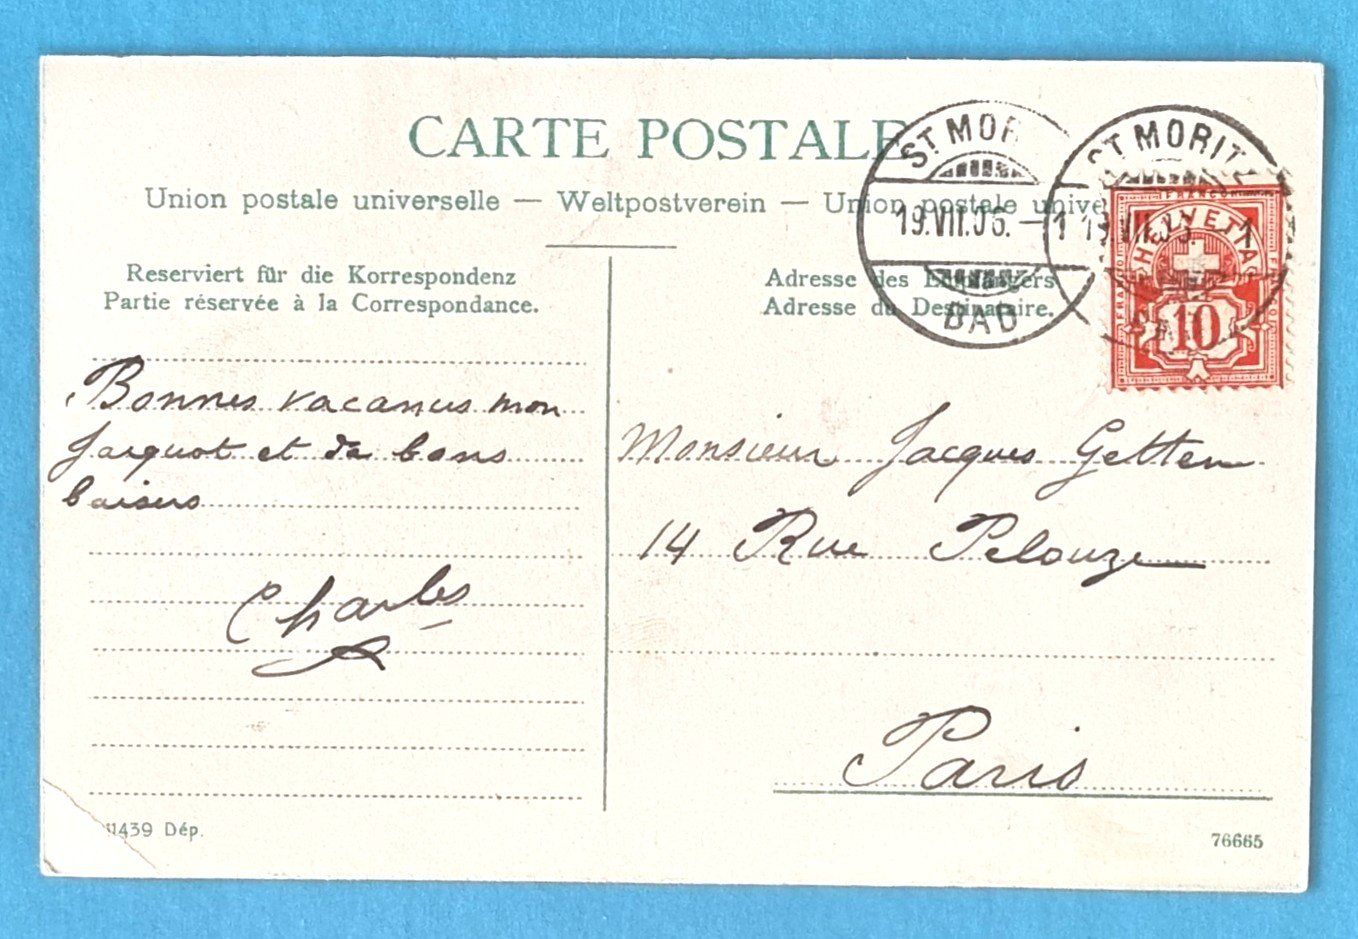 CARTE POSTALE
Union postale universelle — Weltpostverein — Union postale unive
ST. MOR
19.VII.05.–1
BAD
ST. MORITZ
FRANCO
HELVETIA
10
Reserviert für die Korrespondenz
Partie réservée à la Correspondance.
Adresse des Empfängers
Adresse du Destinataire.
Bonnes vacances mon
Jacquot et de bons
baisers
Charles
Monsieur Jacques Getten
14 Rue Pelouze
Paris
11439 Dép.
76665